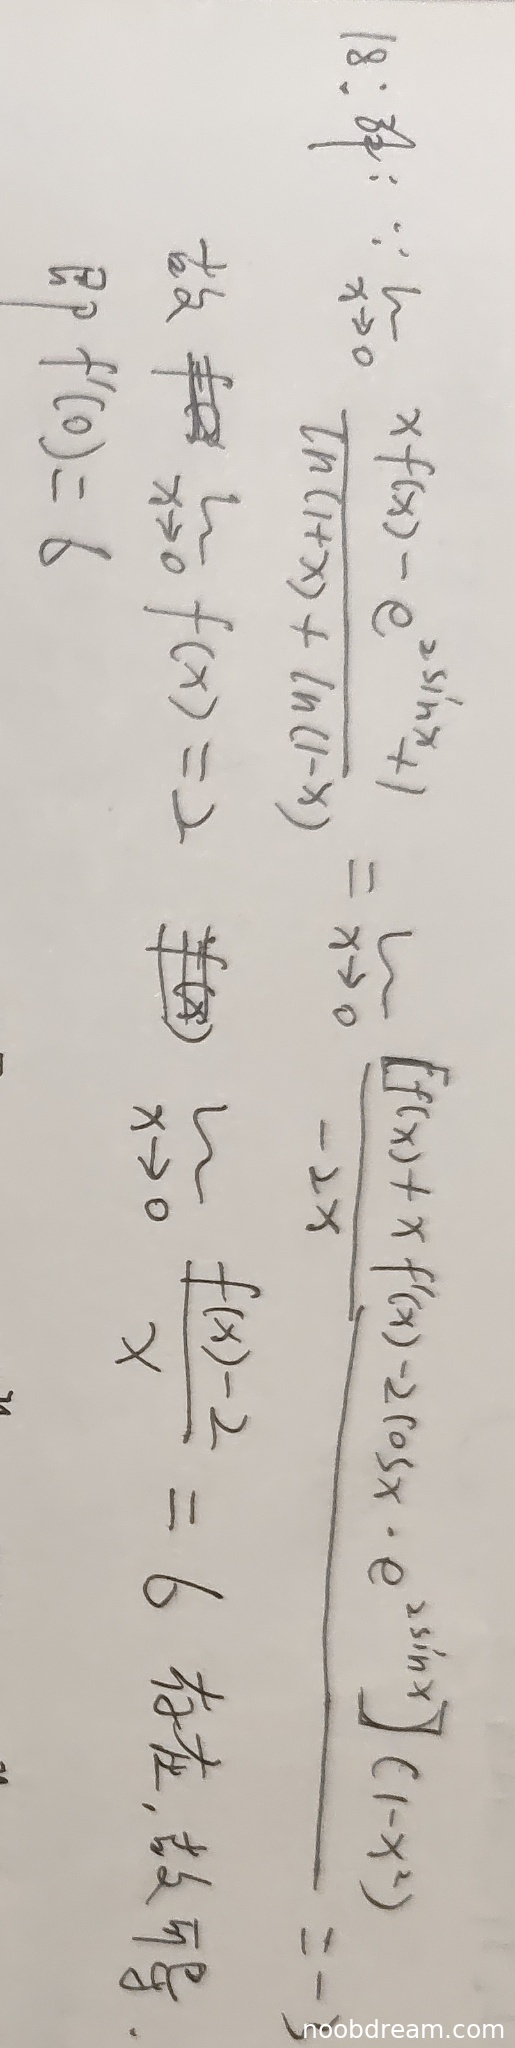 18: 解: ∵ lim_{x→0} \frac{xf(x)-e^{2sinx}+1}{ln(1+x)+ln(1-x)} = lim_{x→0} \frac{[f(x)+xf'(x)-2cosx·e^{2sinx}](1-x²)}{-2x} = -3
故 lim_{x→0} f(x)=2 lim_{x→0} \frac{f(x)-2}{x} = 6 存在,故可导.
即 f'(0)=6
noobdream.com